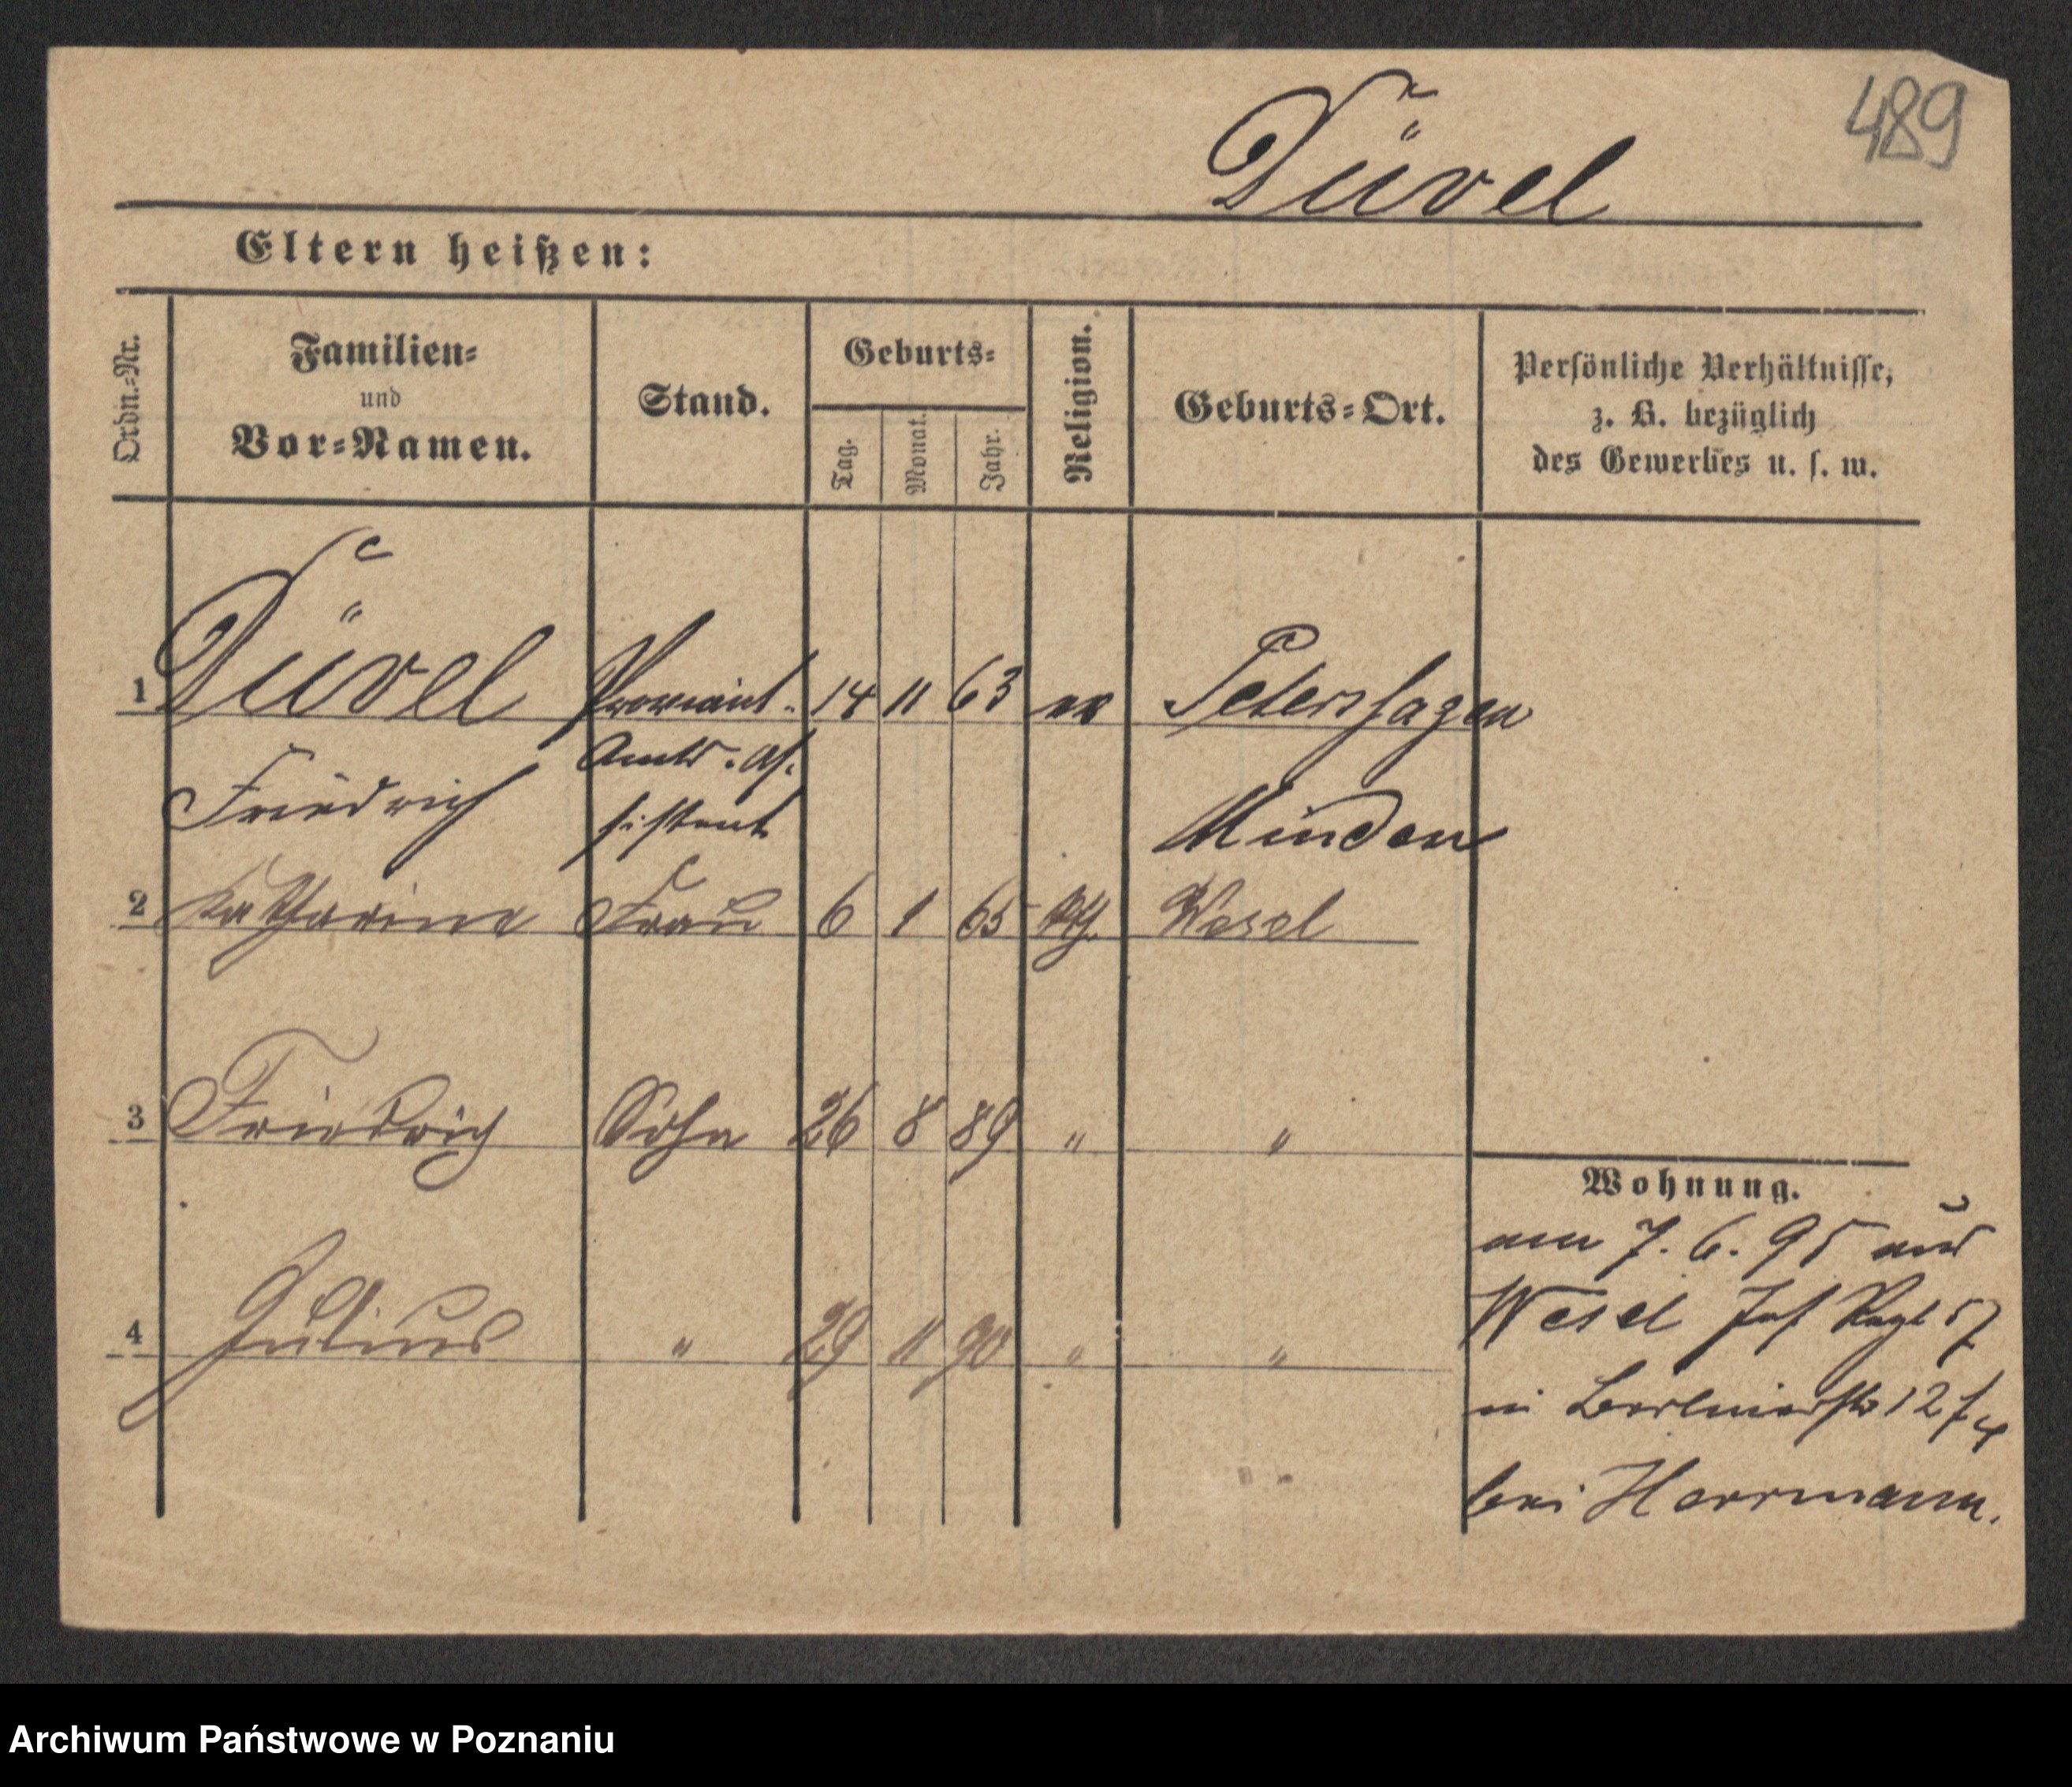 489
Düvel
Eltern heißen:
Ordn.-Nr.
Familien-
und
Vor-Namen.
Stand.
Geburts-
Tag.
Monat.
Jahr.
Religion.
Geburts-Ort.
Persönliche Verhältnisse,
z. B. bezüglich
des Gewerbes u. s. w.
1 Düvel Proviant- 14 11 63 ev Petershagen
Friedrich Amts-As-
sistent Minden
2 Katharina Frau 6 1 65 kth. Wesel
3 Friedrich Sohn 26 8 89 " "
4 Julius " 29 11 90 " "
Wohnung.
am 7. 6. 95 aus
Wesel Inf Regt 57
in Berlinerstr 12
bei Herrmann.
Archiwum Państwowe w Poznaniu